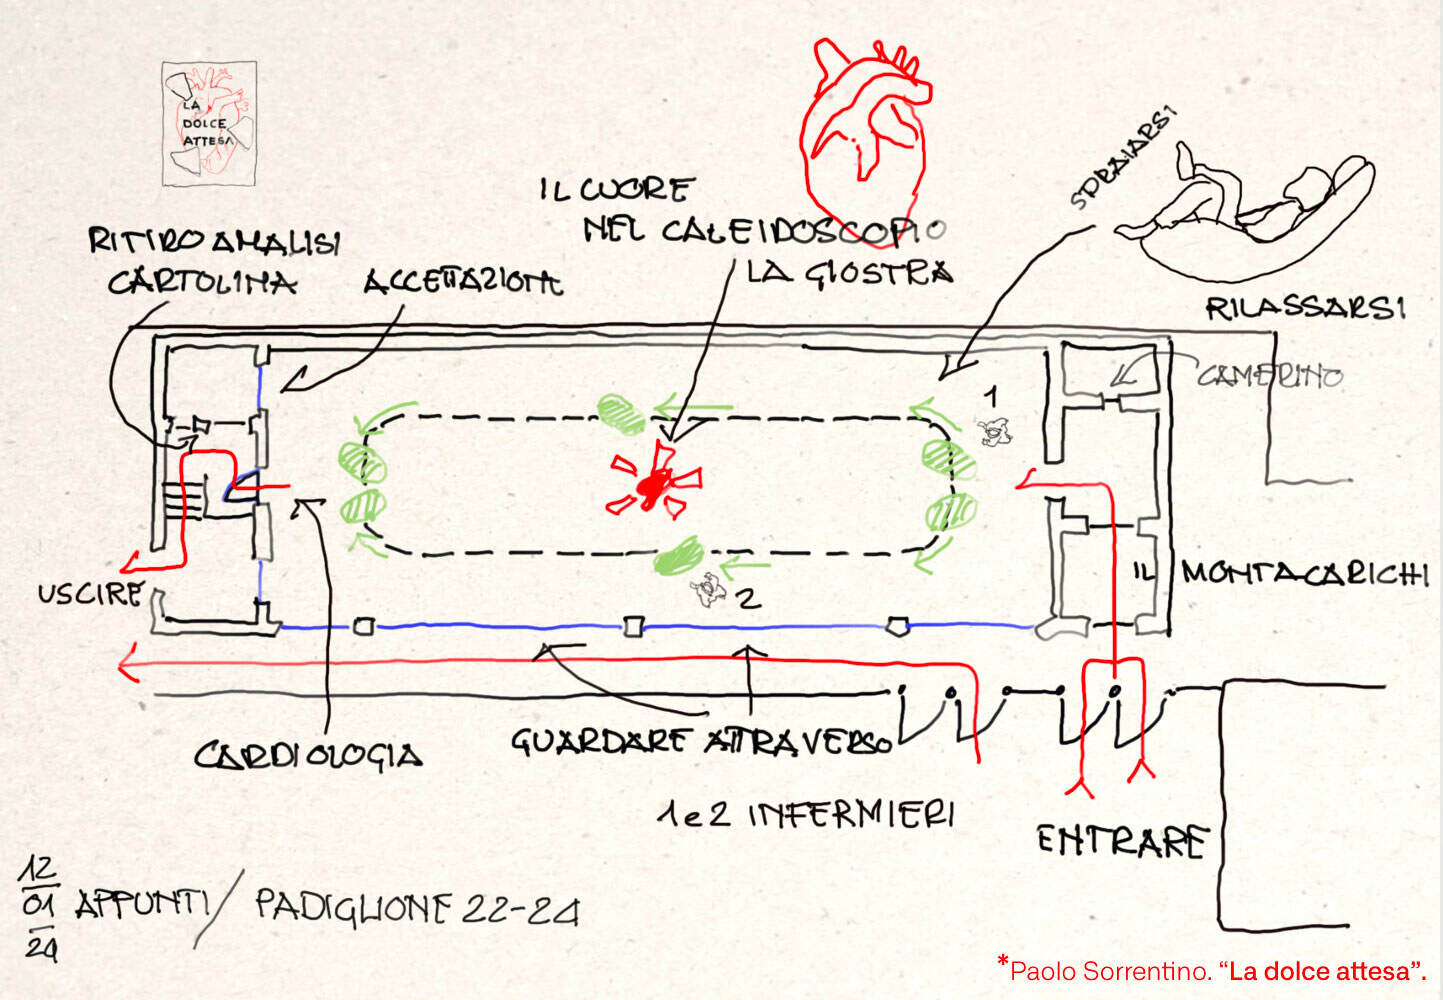 LA
DOLCE
ATTESA
IL CUORE
NEL CALEIDOSCOPIO
LA GIOSTRA
SDRAIARSI
RILASSARSI
RITIRO ANALISI
CARTOLINA
ACCETTAZIONE
CAMERINO
1
2
USCIRE
IL MONTACARICHI
CARDIOLOGIA
GUARDARE ATTRAVERSO
1 e 2 INFERMIERI
ENTRARE
12
01
24
APPUNTI / PADIGLIONE 22-24
*Paolo Sorrentino. “La dolce attesa”.